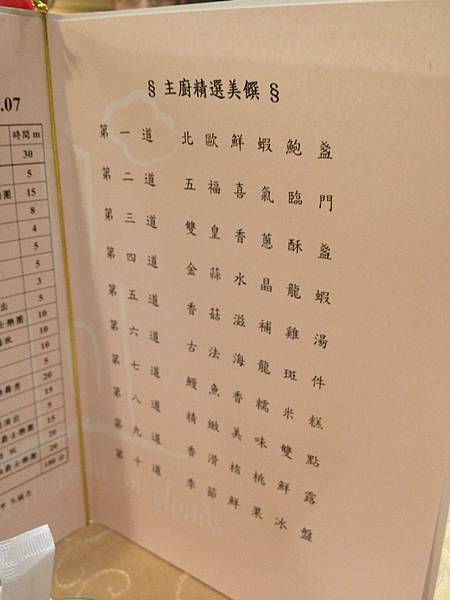 .07
時間 m
30
5
樂團 15
8
4
5
5
3
出 5
士樂團 10
10
10
5
20
15
演出 5
爵士樂團 15
20
爵士樂團 20
180 分
§ 主廚精選美饌 §
第一道 北歐鮮蝦鮑盞
第二道 五福喜氣臨門
第三道 雙皇香蔥酥盞
第四道 金蒜水晶龍蝦
第五道 香菇滋補雞湯
第六道 古法海龍斑件
第七道 鰻魚香糯米糕
第八道 精緻美味雙點
第九道 香滑核桃鮮露
第十道 季節鮮果冰盤